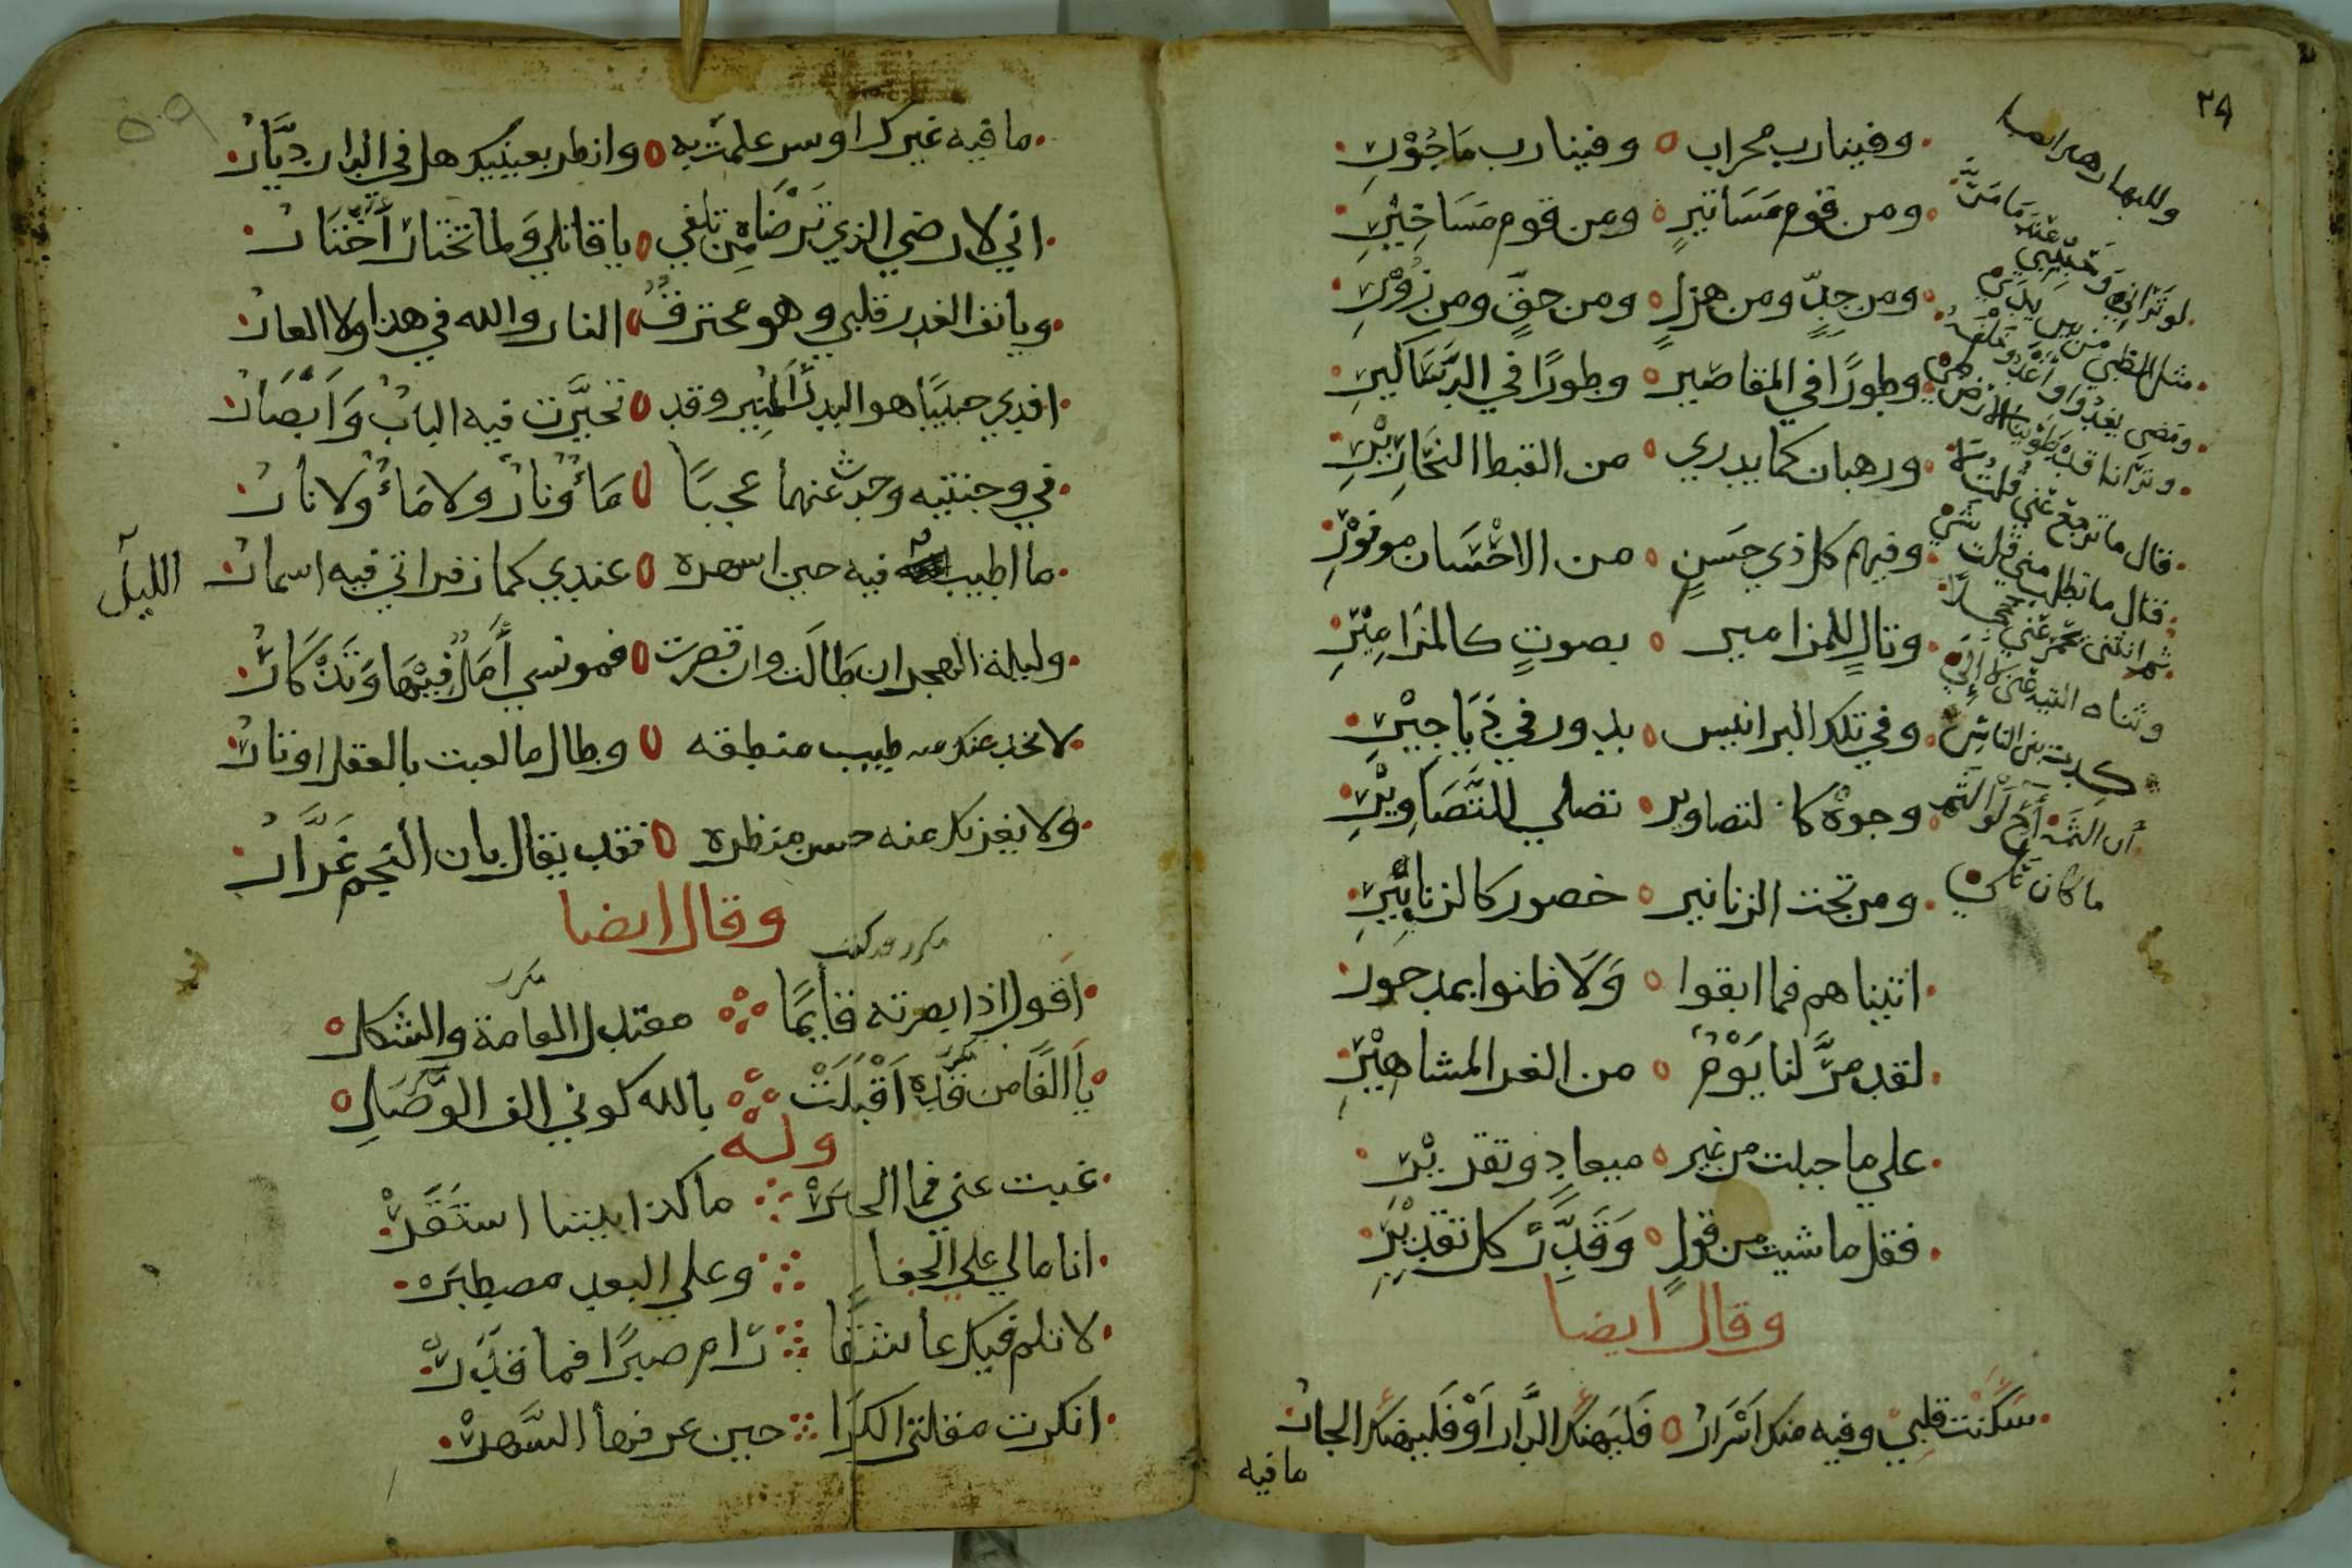 ٢٩
وفينا رب محراب وفينا رب ماجور
ومن قوم مساتير ومن قوم مساخير
ومن جدّ ومن هزل ومن حقّ ومن زور
وطورًا في المقاصير وطورًا في الدساكير
ورهبان كما يدري من القبط النحارير
وفيهم كل ذي حسن من الاحسان موفور
وتالٍ للمزامير بصوتٍ كالمزامير
وفي تلك البرانيس بدور في دياجير
وجوه كالتصاوير تصلي للتصاوير
ومن تحت الزنانير خصور كالزنابير
اتيناهم فما ابقوا ولا ظنوا بمدحور
لقد مرّ لنا يوم من الغر المشاهير
علي ما جبلت من غير ميعاد وتقدير
فقل ما شيت من قول وقدّر كل تقدير
وقال ايضا
سكنت قلبي وفيه منك اسرار فليهنك الدار او فليهنك الجار
ما فيه
وللبها زهير ايضا
لو تراني وحبيبي عندما
مثل الظبي من بين يدي
ومضي يعدوا واعدو خلفه
وترانا قد طوينا الارض طي
قال ما ترجع عني قلت لا
قال ما تطلب مني قلت شي
وثناه التيه عني لا الي
كدت بين الناس
ان الثمه اه لو
ما كان علي
٥٩
ما فيه غيرك او سر علمت به وانظر بعينيك هل في الدار ديّار
اني لارضي الذي ترضاه من تلفي يا قاتلي ولما تختار اختار
ويانف الغدر قلبي وهو محترق النار والله في هذا ولا العار
افدي حبيبًا هو البدر المنير وقد تحيّرت فيه الباب وابصار
في وجنتيه وحدث عنهما عجبًا ماء ونار ولا ماء ولا نار
ما اطيب فيه حين اسهره عندي كما زفراتي فيه اسمار
الليل
وليلة الهجر ان طالت وان قصرت فمونسي أمل فيها وتذكار
لا يخدعنك منه طيب منطقه وطال ما لعبت بالعقل اوتار
ولا يغرنك منه حسن منظره فقد يقال بان النجم غرّار
وقال ايضا
مكرر قد كتب
اقول اذا ابصرته قايمًا معتدل القامة والشكل
مكرر
يا الفًا من قدّه اقبلت بالله كوني الف الوصل
وله
غبت عني فما الخبر ما كذا بيننا استقر
انا مالي علي الجفا وعلي البعد مصطبر
لا تلم فيك عاشقًا رام صبرًا فما قدر
انكرت مقلتي الكرا حين عرفها السهر